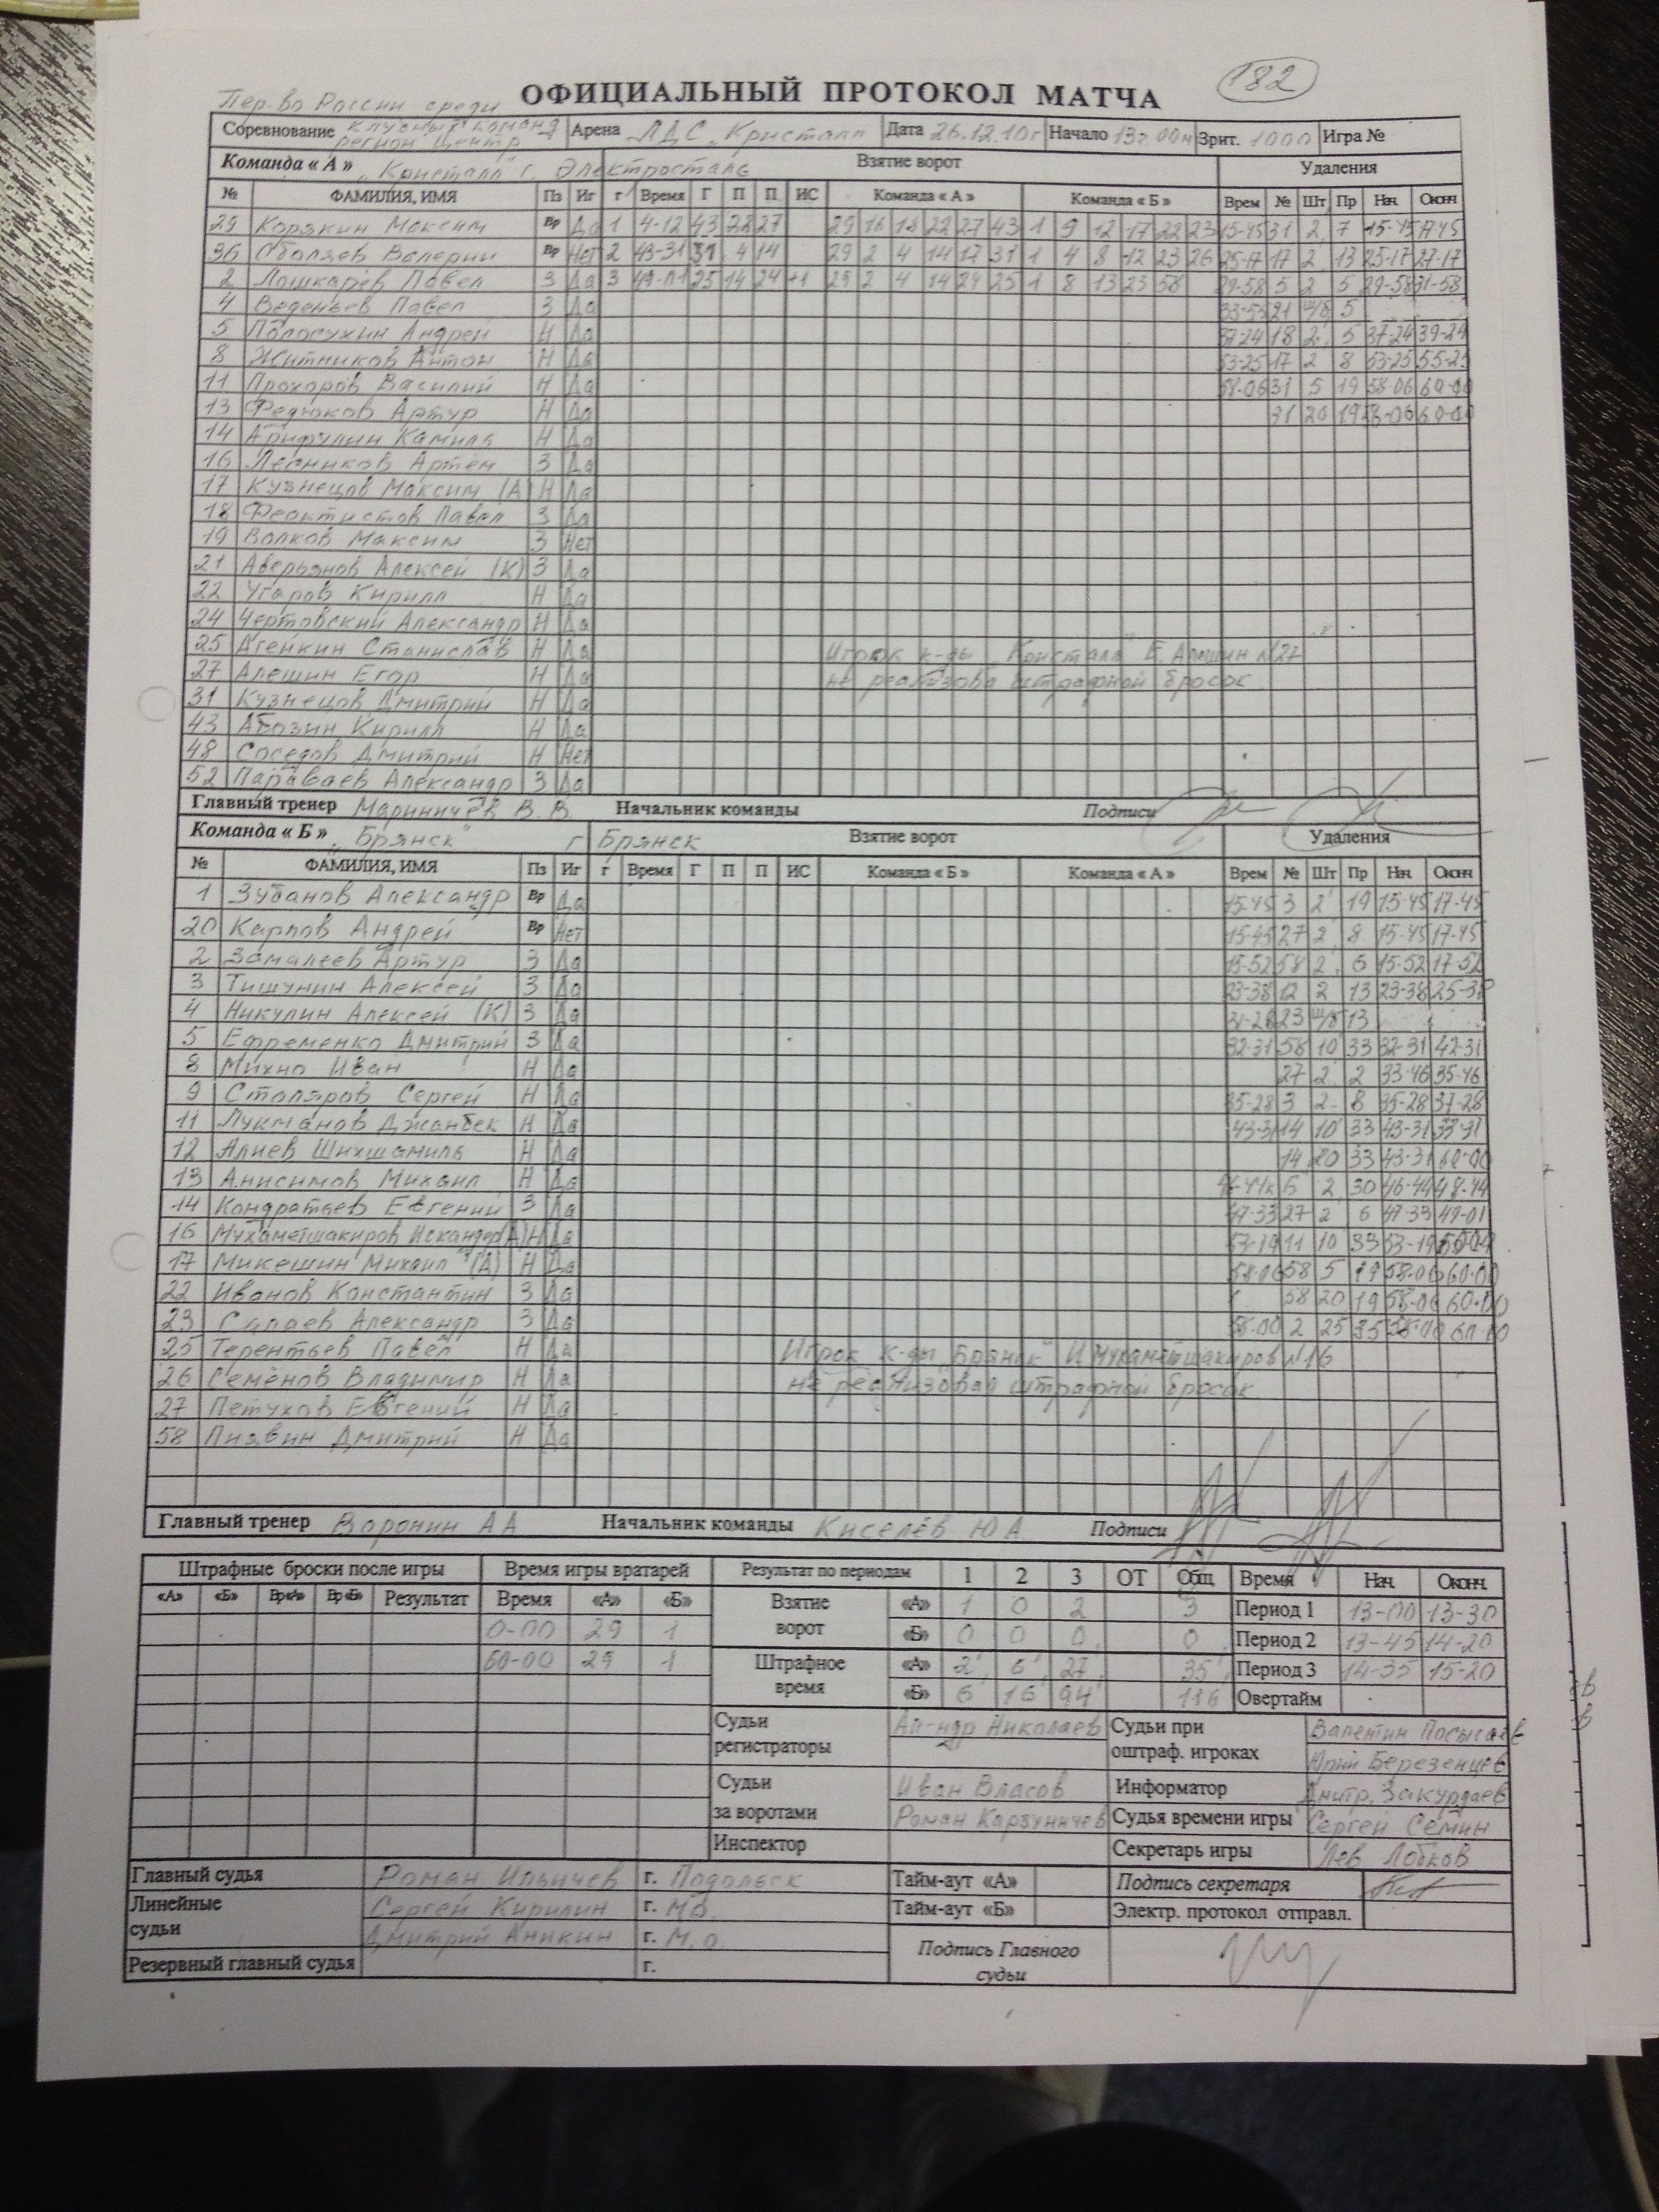 182
ОФИЦИАЛЬНЫЙ ПРОТОКОЛ МАТЧА
Пер-во России среди
Соревнование клубных команд Арена ЛДС "Кристалл Дата 26.12.10г Начало 13ч00м Зрит. 1000 Игра №
регион Центр
Команда « А » "Кристалл" г. Электросталь Взятие ворот Удаления
№ ФАМИЛИЯ, ИМЯ Пз Иг г Время Г П П ИС Команда « А » Команда « Б » Врем № Шт Пр Нач. Оконч
29 Корякин Максим Вр Да 1 4-12 43 22 27 29 16 18 22 27 43 1 9 12 17 22 23 15-45 31 2 7 15-45 17-45
36 Оболяев Валерий Вр Нет 2 43-31 31 4 14 29 2 4 14 17 31 1 4 8 12 23 26 25-17 17 2 13 25-17 27-17
2 Лошкарёв Павел З Да 3 49-01 25 14 24 +1 29 2 4 14 24 25 1 8 13 23 58 29-58 5 2 5 29-58 31-58
4 Веденьев Павел З Да 33-53 21 ш/б 5
5 Полосухин Андрей Н Да 37-24 18 2 5 37-24 39-24
8 Житников Антон Н Да 53-25 17 2 8 53-25 55-25
11 Прохоров Василий Н Да 58-06 31 5 19 58-06 60-00
13 Федюков Артур Н Да 31 20 19 58-06 60-00
14 Арифулин Камиль Н Да
16 Лесников Артём З Да
17 Кузнецов Максим (А) Н Да
18 Феоктистов Павел З Да
19 Волков Максим З Нет
21 Аверьянов Алексей (К) З Да
22 Угаров Кирилл Н Да
24 Чертовский Александр Н Да
25 Агейкин Станислав Н Да Игрок к-ды "Кристалл" Е. Алешин №27
27 Алешин Егор Н Да не реализова штрафной бросок
31 Кузнецов Дмитрий Н Да
43 Абозин Кирилл Н Да
48 Соседов Дмитрий Н Нет
52 Параваев Александр З Да
Главный тренер Маринычев В. В. Начальник команды Подписи
Команда « Б » "Брянск" г Брянск Взятие ворот Удаления
№ ФАМИЛИЯ, ИМЯ Пз Иг г Время Г П П ИС Команда « Б » Команда « А » Врем № Шт Пр Нач. Оконч
1 Зубанов Александр Вр Да 15-45 3 2 19 15-45 17-45
20 Карпов Андрей Вр Нет 15-45 27 2 8 15-45 17-45
2 Замалеев Артур З Да 15-52 58 2 6 15-52 17-52
3 Тишунин Алексей З Да 23-38 12 2 13 23-38 25-38
4 Никулин Алексей (К) З Да 31-26 23 ш/б 13
5 Ефременко Дмитрий З Да 32-31 58 10 33 32-31 42-31
8 Михно Иван Н Да 27 2 2 33-46 35-46
9 Столяров Сергей Н Да 35-28 3 2 8 35-28 37-28
11 Лукманов Джанбек Н Да 43-31 14 10 33 43-31
12 Алиев Шихшамиль Н Да 14 20 33 43-31 60-00
13 Анисимов Михаил Н Да 46-44 5 2 30 46-44 48-44
14 Кондратьев Евгений З Да 47-33 27 2 6 47-33 49-01
16 Мухаметшакиров Искандер (А) Н Да 53-19 11 10 33 53-19
17 Микешин Михаил (А) Н Да 58-06 58 5 19 58-06 60-00
22 Иванов Константин З Да 58 20 19 58-06 60-00
23 Сапаев Александр З Да 2 25 60-00
25 Терентьев Павел Н Да Игрок к-ды "Брянск" И. Мухаметшакиров №16
26 Семёнов Владимир Н Да не реализовал штрафной бросок
27 Петухов Евгений Н Да
58 Пиявин Дмитрий Н Да
Главный тренер Воронин А А Начальник команды Киселёв Ю А. Подписи
Штрафные броски после игры Время игры вратарей Результат по периодам 1 2 3 ОТ Общ. Время Нач. Оконч.
«А» «Б» Вр«А» Вр«Б» Результат Время «А» «Б» Взятие ворот «А» 1 0 2 3 Период 1 13-00 13-30
0-00 29 1 «Б» 0 0 0 0 Период 2 13-45 14-20
60-00 29 1 Штрафное время «А» 2 6 27 35 Период 3 14-35 15-20
«Б» 6 16 94 116 Овертайм
Судьи регистраторы Ал-ндр Николаев Судьи при оштраф. игроках Валентин Посысаев
Юрий Березенцев
Судьи за воротами Иван Власов Информатор Дмитр. Закурдаев
Роман Карзуничев Судья времени игры Сергей Сёмин
Инспектор Секретарь игры Лев Лобков
Главный судья Роман Ильичев г. Подольск Тайм-аут «А» Подпись секретаря
Линейные судьи Сергей Кирилин г. М.О. Тайм-аут «Б» Электр. протокол отправл.
Дмитрий Аникин г. М.О. Подпись Главного судьи
Резервный главный судья г.